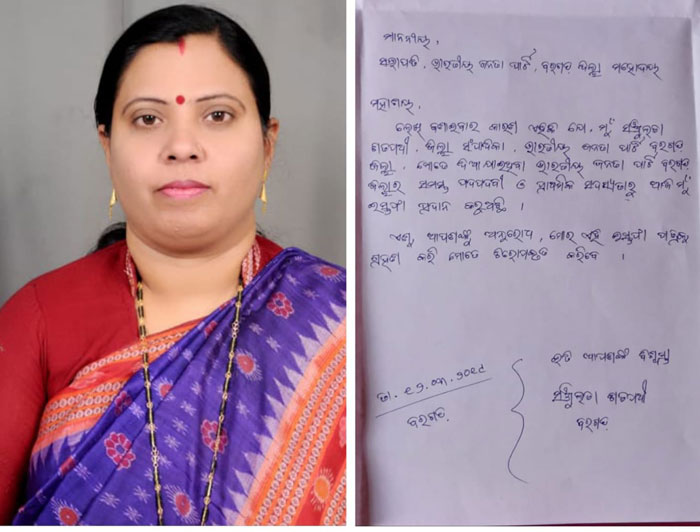 ମାନନୀୟ,
ସଭାପତି, ଭାରତୀୟ ଜନତା ପାର୍ଟି, ବରଗଡ଼ ଜିଲ୍ଲା ମହୋଦୟ
ମହାଶୟ,
ଲେଖି ଜଣାଇବାର କାରଣ ଏହିକି ଯେ, ମୁଁ
ଶତପଥୀ, ଜିଲ୍ଲା ସଂପାଦିକା, ଭାରତୀୟ ଜନତା ପାର୍ଟି ବରଗଡ଼
ଜିଲ୍ଲା, ମୋତେ ଦିଆଯାଇଥିବା ଭାରତୀୟ ଜନତା ପାର୍ଟି ବରଗଡ଼
ଜିଲ୍ଲାର ସମସ୍ତ ପଦପଦବୀ ଓ ପ୍ରାଥମିକ ସଦସ୍ୟତାରୁ ଆଜି ମୁଁ
ଇସ୍ତଫା ପ୍ରଦାନ କରୁଅଛି ।
ଏଣୁ, ଆପଣଙ୍କୁ ଅନୁରୋଧ, ମୋର ଏହି ଇସ୍ତଫା ପତ୍ରକୁ
ଗ୍ରହଣ କରି ମୋତେ କରିବେ ।
ଇତି ଆପଣଙ୍କ ବିଶ୍ୱସ୍ତ
ଶତପଥୀ
ବରଗଡ଼
ତା.
ବରଗଡ଼.